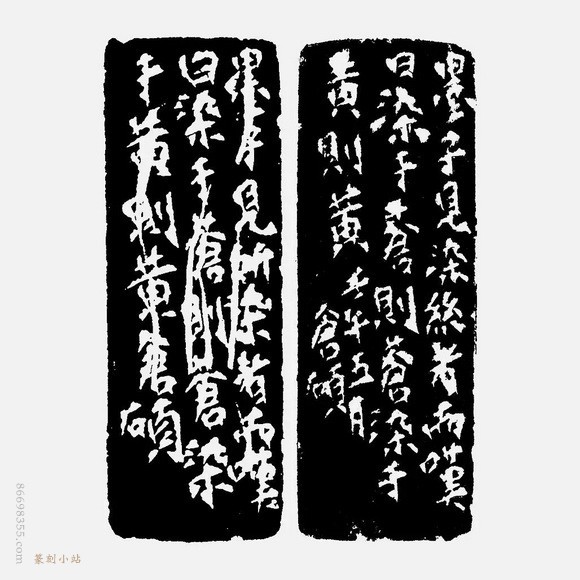 墨子見染絲者而嘆
曰染于蒼則蒼染于
黃則黃
壬午五月
倉碩
墨子見所染者而嘆
曰染于蒼則蒼染
于黃則黃倉碩
86698355.com
篆刻小站